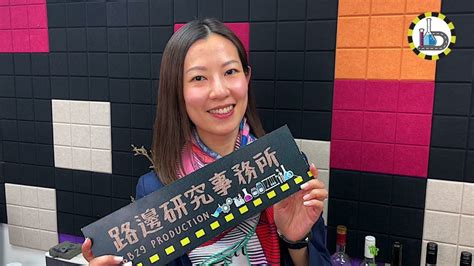 路邊研究事務所
LB29 PRODUCTION